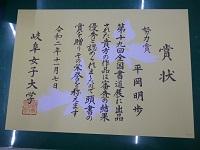 賞状
努力賞
平岡明歩
第十九回全国書道展に出品
された貴方の作品は審査の結果
優秀と認められましたので頭書の
賞を贈りその栄誉を称えます
令和二年十一月七日
岐阜女子大学